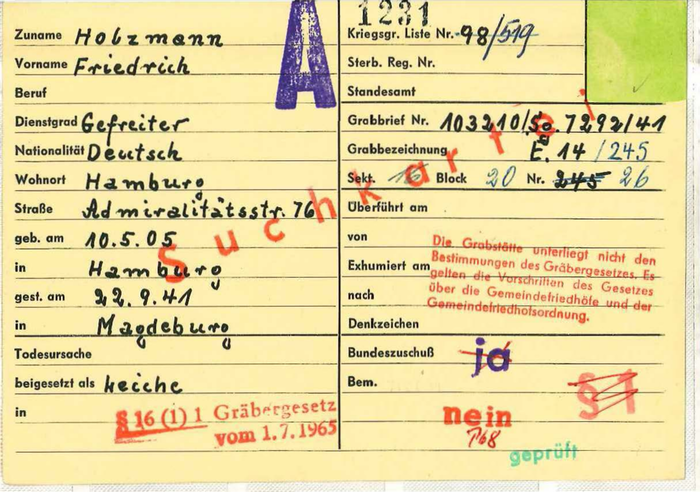 1231
A
Zuname Holzmann
Vorname Friedrich
Beruf
Dienstgrad Gefreiter
Nationalität Deutsch
Wohnort Hamburg
Straße Admiralitätsstr. 76
geb. am 10.5.05
in Hamburg
gest. am 22.9.41
in Magdeburg
Todesursache
beigesetzt als Leiche
in
§ 16 (1) 1 Gräbergesetz
vom 1.7.1965
Suchkartei
Kriegsgr. Liste Nr. 98/519
Sterb. Reg. Nr.
Standesamt
Grabbrief Nr. 103210/50. 7292/41
Grabbezeichnung E. 14 /245
Sekt. Block 20 Nr. 245 26
Überführt am
von
Exhumiert am
nach
Die Grabstätte unterliegt nicht den
Bestimmungen des Gräbergesetzes. Es
gelten die Vorschriften des Gesetzes
über die Gemeindefriedhöfe und der
Gemeindefriedhofsordnung.
Denkzeichen
Bundeszuschuß ja
Bem.
§ 1
nein
geprüft